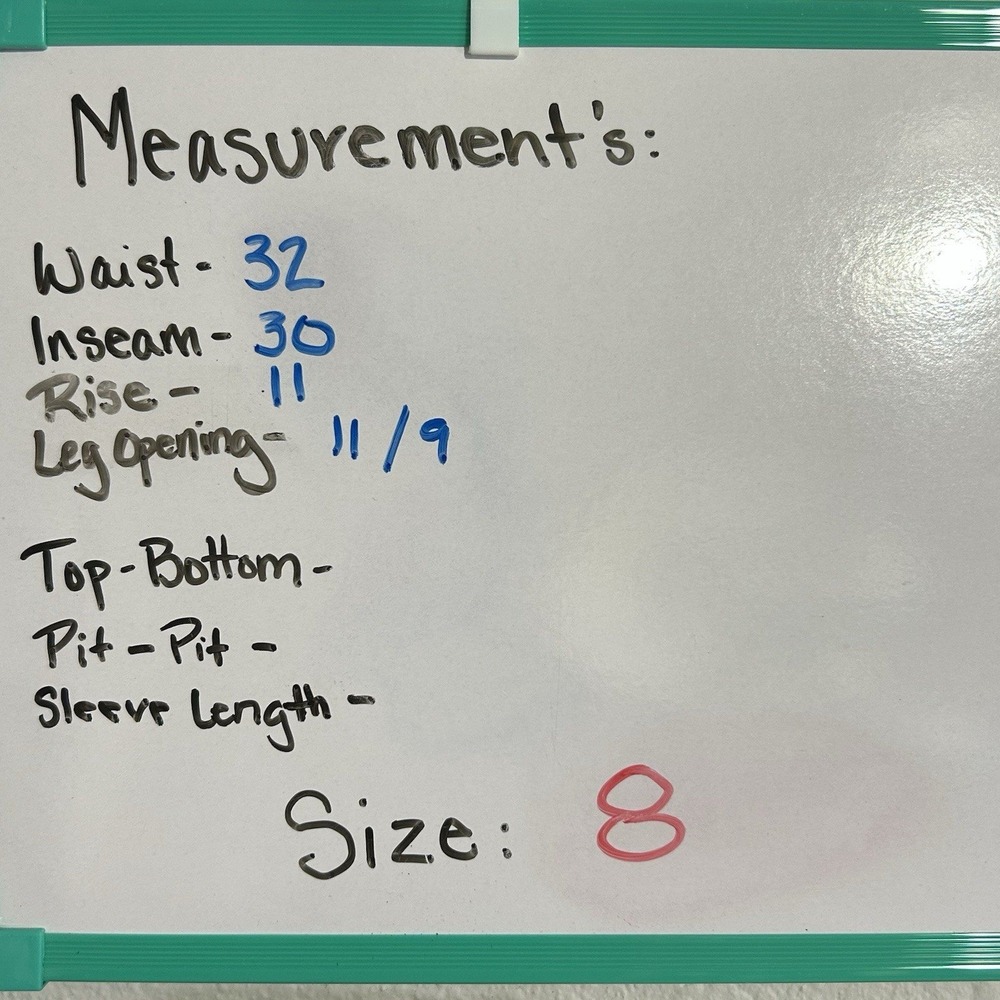 Measurement's:
Waist - 32
Inseam - 30
Rise - 11
Leg Opening - 11/9
Top-Bottom -
Pit-Pit -
Sleeve Length -
Size: 8